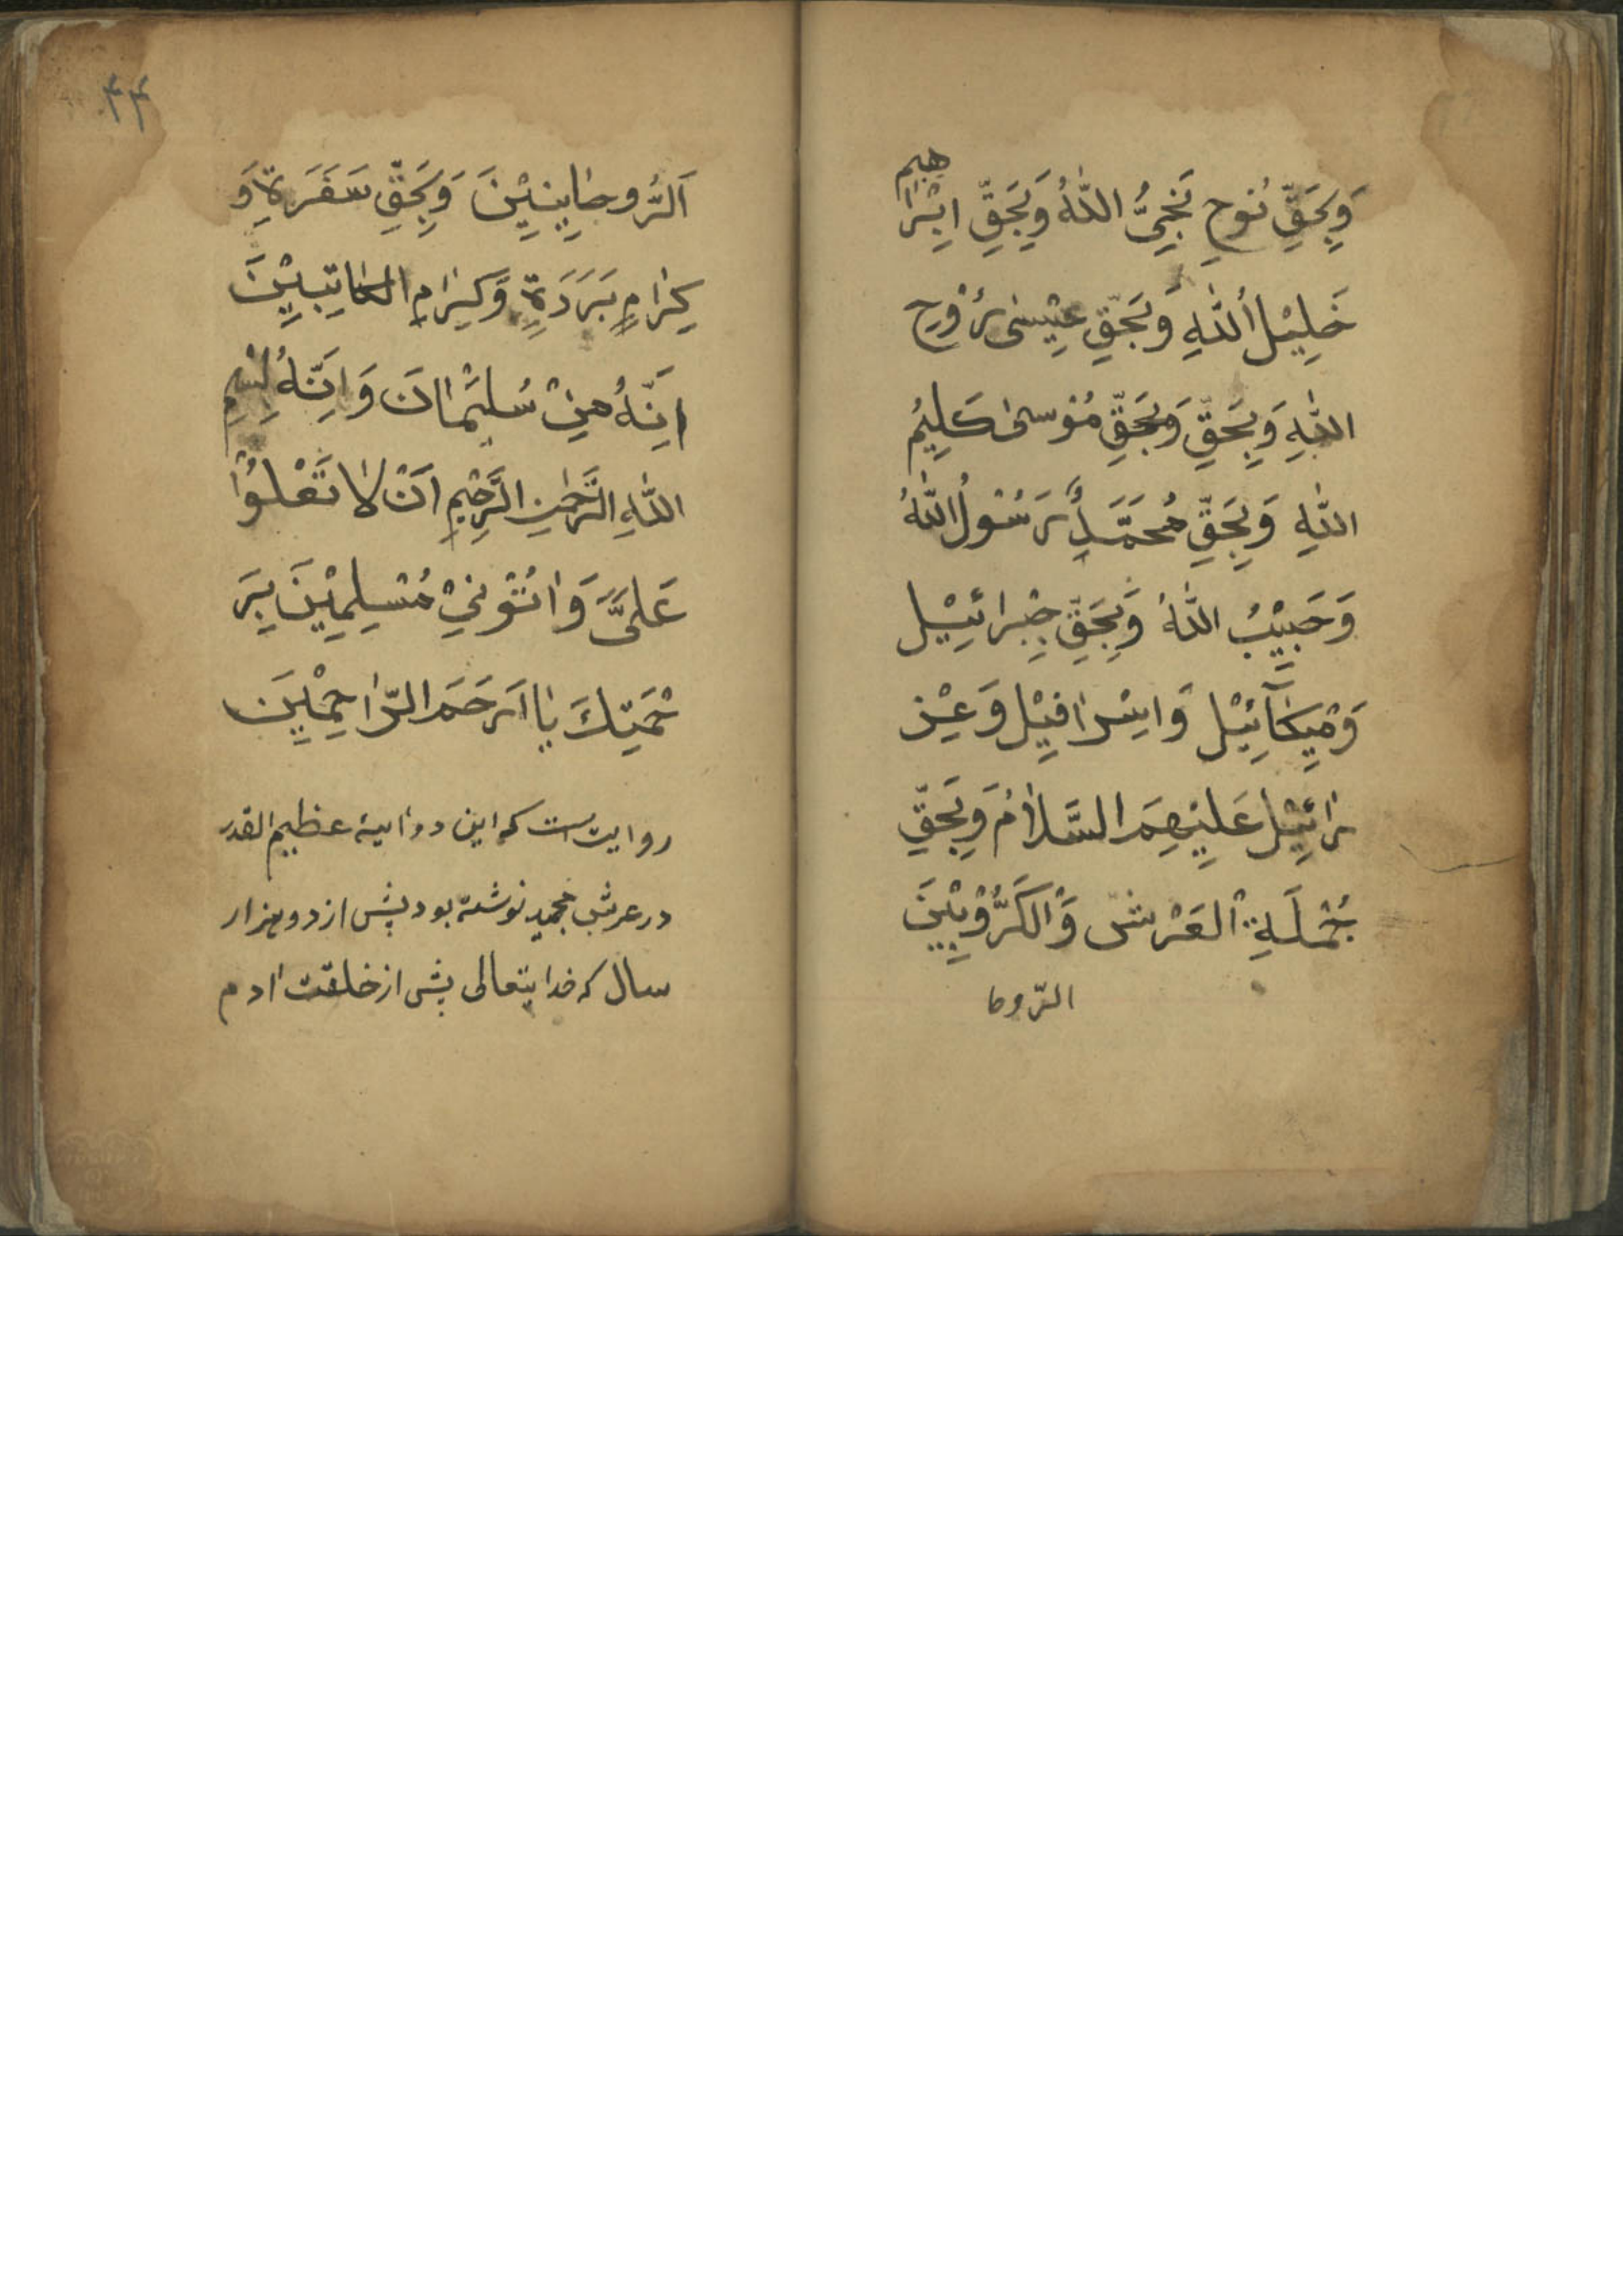 وَبِحَقِّ نُوْحٍ نَجِىُّ اللّٰهُ وَبِحَقِّ اِبْرٰا هيم
خَلِيْلُ اللّٰهِ وَبِحَقِّ عِيْسٰى رُوْحِ
اللّٰهِ وَبِحَقِّ وَبِحَقِّ مُوْسىٰ كَلِيْمُ
اللّٰهِ وَبِحَقِّ مُحَمَّدٍ رَسُوْلُ اللّٰهُ
وَحَبِيْبُ اللّٰهُ وَبِحَقِّ جِبْرائيْل
وَمِيْكٰآئِيْل وَاِسْرٰافِيْل وَعِزْ
رٰائِيْل عَلَيْهِمَ السَّلاٰمُ وَبِحَقِّ
جُمْلَةِ الْعَرْش وَالْكَرُّوْبِيْنَ
الرّوحا
اَلرُّوحٰانِيِيْنَ وَبِحَقِّ سَفَرَةٍ وَ
كِرٰامٍ بَرَرَةٍ وَكِرٰامِ الكٰاتِبِيْنَ
اِنَّهُ مِنْ سُلَيْمٰانَ وَاِنَّهُ بِسْمِ
اللّٰهِ الرَّحْمٰنِ الرَّحْيِمِ اَنْ لاٰ تَعْلُوْا
عَلَىَّ وَاْتُوْنِيْ مُسْلِمِيْنَ بِرَ
حْمَتِكَ يٰا اَرْحَمَ الرّٰاحِمْيِنَ
روايت است كه اين دو آيهٔ عظيم القدر
در عرش مجيد نوشته بود پيش از دو هزار
سال كه خدايتعالى پيش از خلقت آدم
۴۴